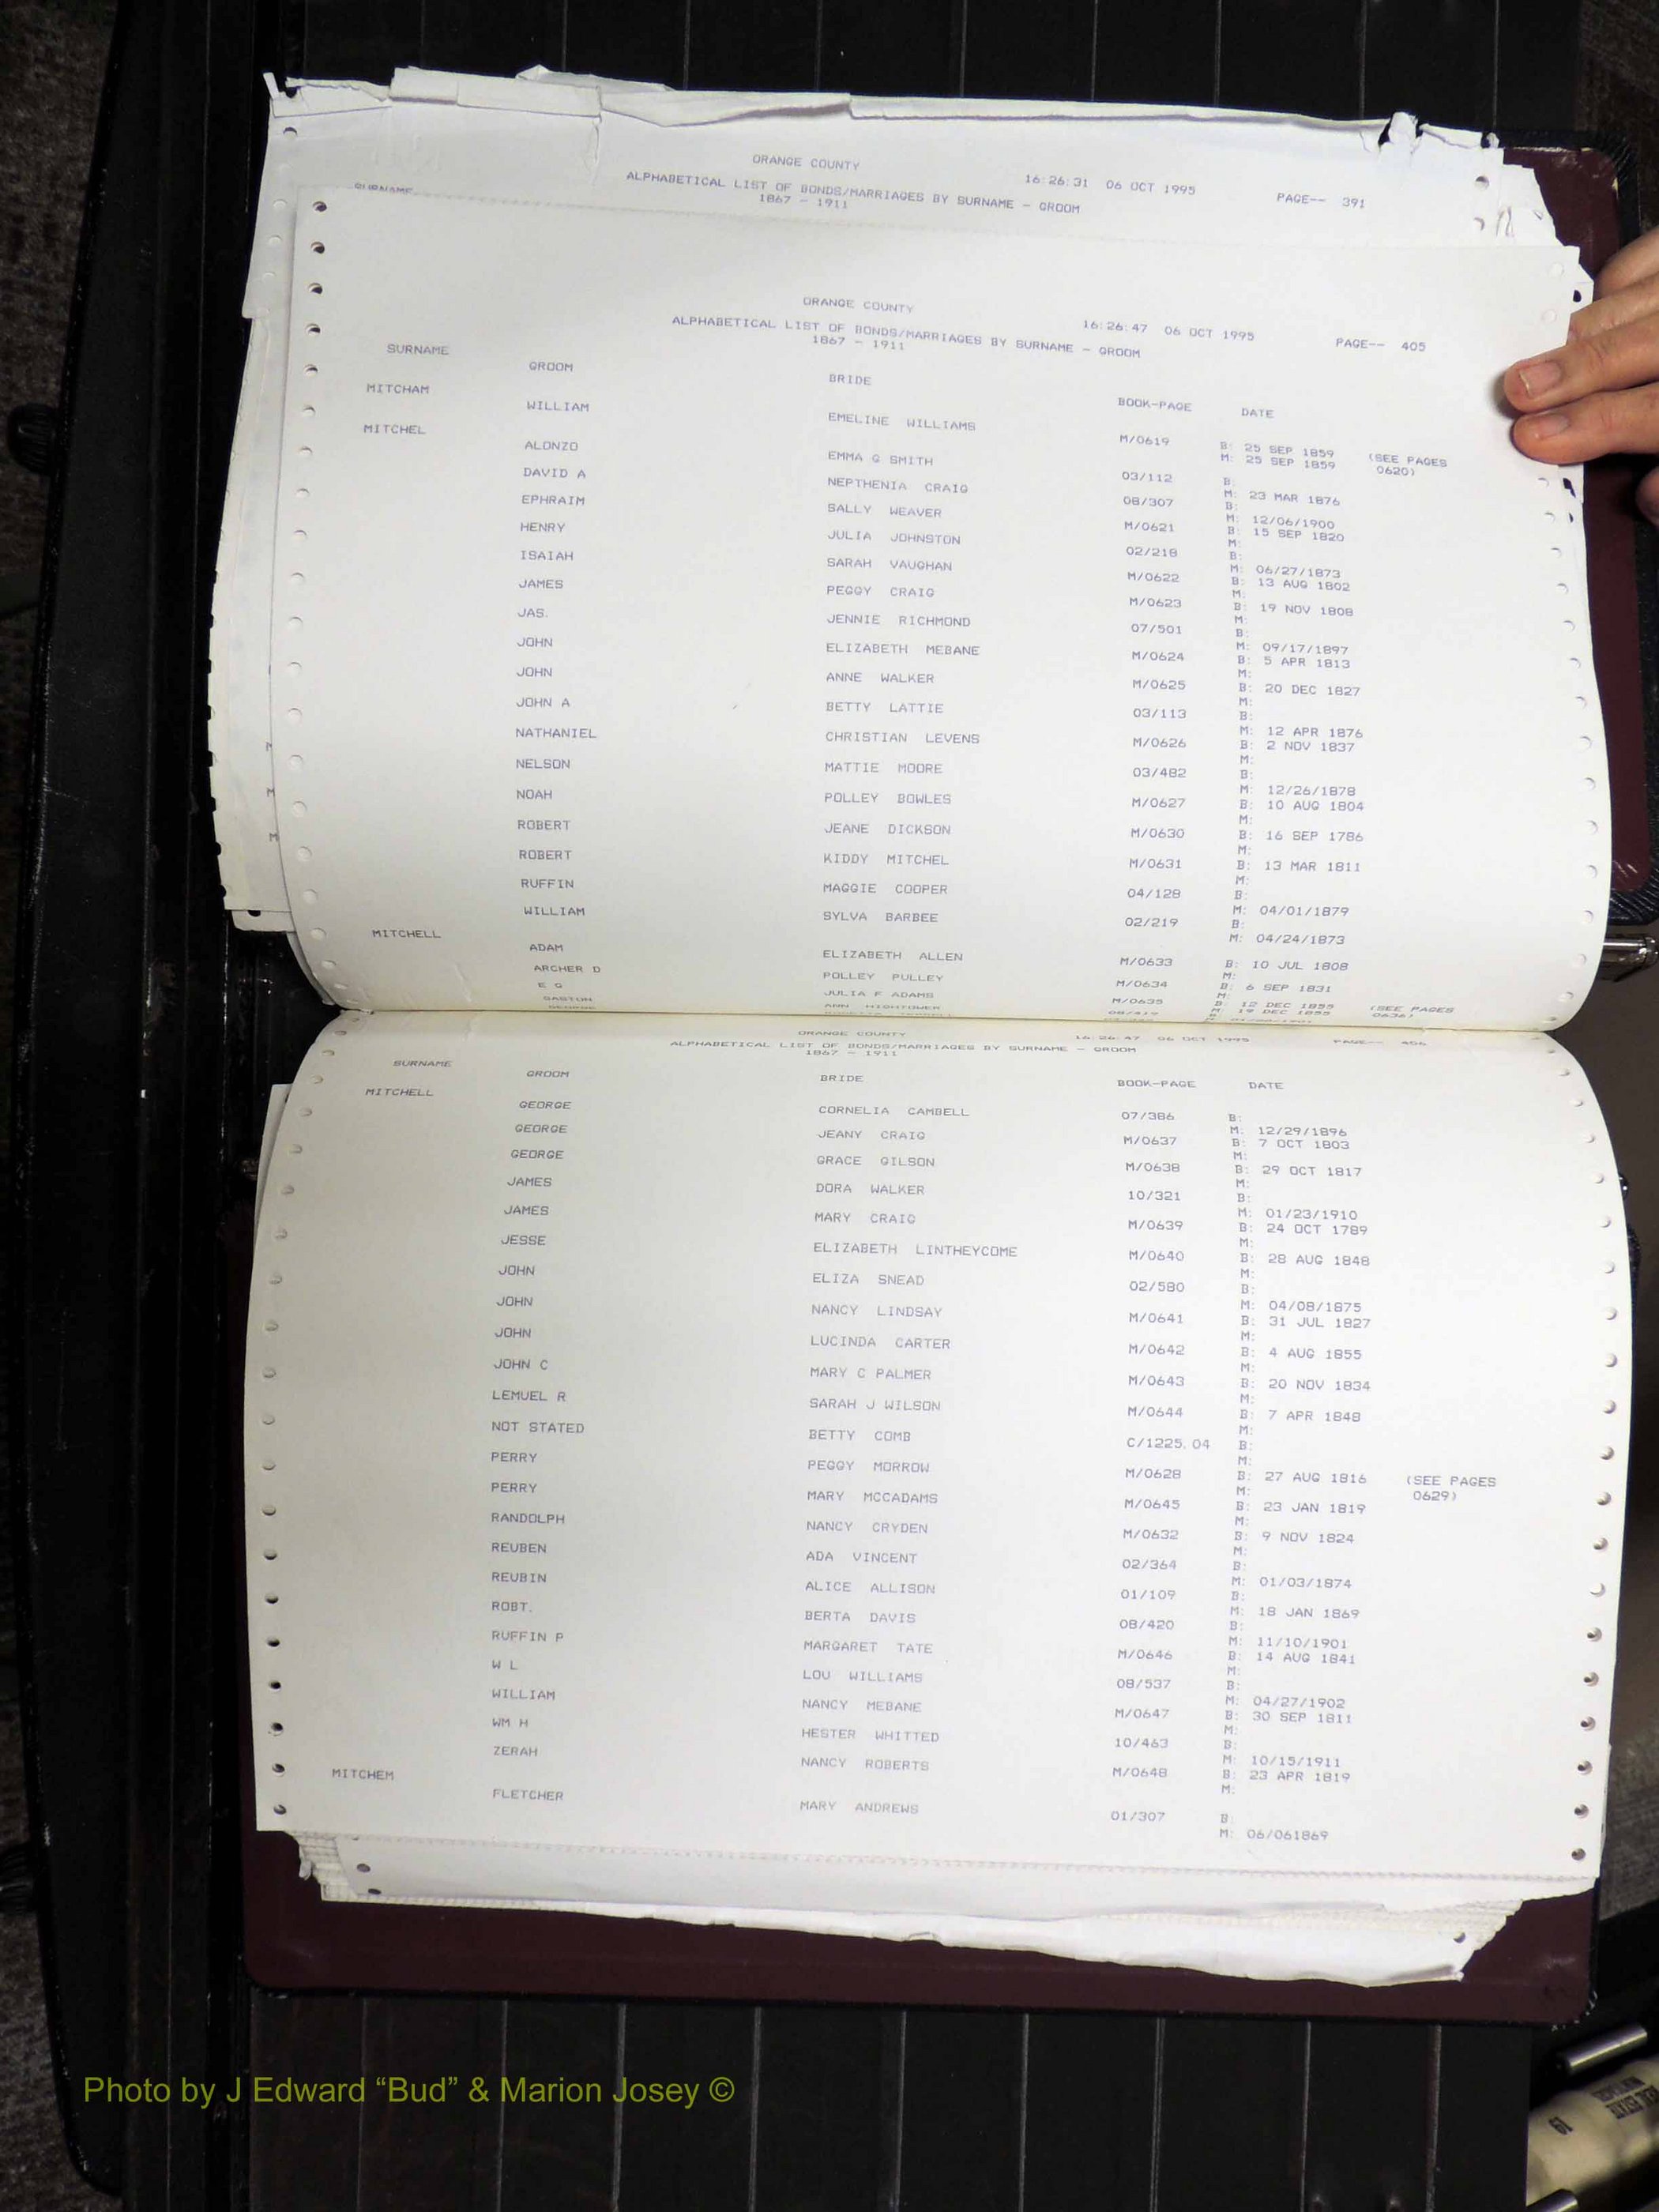 ORANGE COUNTY
16:26:31 06 OCT 1995 PAGE-- 391
ALPHABETICAL LIST OF BONDS/MARRIAGES BY SURNAME - GROOM
1867 - 1911
SURNAME
ORANGE COUNTY
16:26:47 06 OCT 1995 PAGE-- 405
ALPHABETICAL LIST OF BONDS/MARRIAGES BY SURNAME - GROOM
1867 - 1911
SURNAME GROOM BRIDE BOOK-PAGE DATE
MITCHAM
WILLIAM EMELINE WILLIAMS M/0619 B: 25 SEP 1859 (SEE PAGES
M: 25 SEP 1859 0620)
MITCHEL
ALONZO EMMA G SMITH 03/112 B:
M: 23 MAR 1876
DAVID A NEPTHENIA CRAIG 08/307 B:
M: 12/06/1900
EPHRAIM SALLY WEAVER M/0621 B: 15 SEP 1820
M:
HENRY JULIA JOHNSTON 02/218 B:
M: 06/27/1873
ISAIAH SARAH VAUGHAN M/0622 B: 13 AUG 1802
M:
JAMES PEGGY CRAIG M/0623 B: 19 NOV 1808
M:
JAS. JENNIE RICHMOND 07/501 B:
M: 09/17/1897
JOHN ELIZABETH MEBANE M/0624 B: 5 APR 1813
M:
JOHN ANNE WALKER M/0625 B: 20 DEC 1827
M:
JOHN A BETTY LATTIE 03/113 B:
M: 12 APR 1876
NATHANIEL CHRISTIAN LEVENS M/0626 B: 2 NOV 1837
M:
NELSON MATTIE MOORE 03/482 B:
M: 12/26/1878
NOAH POLLEY BOWLES M/0627 B: 10 AUG 1804
M:
ROBERT JEANE DICKSON M/0630 B: 16 SEP 1786
M:
ROBERT KIDDY MITCHEL M/0631 B: 13 MAR 1811
M:
RUFFIN MAGGIE COOPER 04/128 B:
M: 04/01/1879
WILLIAM SYLVA BARBEE 02/219 B:
M: 04/24/1873
MITCHELL
ADAM ELIZABETH ALLEN M/0633 B: 10 JUL 1808
M:
ARCHER D POLLEY PULLEY M/0634 B: 6 SEP 1831
M:
E G JULIA F ADAMS M/0635 B: 12 DEC 1855 (SEE PAGES
M: 19 DEC 1855 0636)
GASTON ANN HIGHTOWER 08/419
GEORGE
ORANGE COUNTY
16:26:47 06 OCT 1995 PAGE-- 406
ALPHABETICAL LIST OF BONDS/MARRIAGES BY SURNAME - GROOM
1867 - 1911
SURNAME GROOM BRIDE BOOK-PAGE DATE
MITCHELL
GEORGE CORNELIA CAMBELL 07/386 B:
M: 12/29/1896
GEORGE JEANY CRAIG M/0637 B: 7 OCT 1803
M:
GEORGE GRACE GILSON M/0638 B: 29 OCT 1817
M:
JAMES DORA WALKER 10/321 B:
M: 01/23/1910
JAMES MARY CRAIG M/0639 B: 24 OCT 1789
M:
JESSE ELIZABETH LINTHEYCOME M/0640 B: 28 AUG 1848
M:
JOHN ELIZA SNEAD 02/580 B:
M: 04/08/1875
JOHN NANCY LINDSAY M/0641 B: 31 JUL 1827
M:
JOHN LUCINDA CARTER M/0642 B: 4 AUG 1855
M:
JOHN C MARY C PALMER M/0643 B: 20 NOV 1834
M:
LEMUEL R SARAH J WILSON M/0644 B: 7 APR 1848
M:
NOT STATED BETTY COMB C/1225.04 B:
M:
PERRY PEGGY MORROW M/0628 B: 27 AUG 1816 (SEE PAGES
M: 0629)
PERRY MARY MCCADAMS M/0645 B: 23 JAN 1819
M:
RANDOLPH NANCY CRYDEN M/0632 B: 9 NOV 1824
M:
REUBEN ADA VINCENT 02/364 B:
M: 01/03/1874
REUBIN ALICE ALLISON 01/109 B:
M: 18 JAN 1869
ROBT. BERTA DAVIS 08/420 B:
M: 11/10/1901
RUFFIN P MARGARET TATE M/0646 B: 14 AUG 1841
M:
W L LOU WILLIAMS 08/537 B:
M: 04/27/1902
WILLIAM NANCY MEBANE M/0647 B: 30 SEP 1811
M:
WM H HESTER WHITTED 10/463 B:
M: 10/15/1911
ZERAH NANCY ROBERTS M/0648 B: 23 APR 1819
M:
MITCHEM
FLETCHER MARY ANDREWS 01/307 B:
M: 06/061869
Photo by J Edward “Bud” & Marion Josey ©